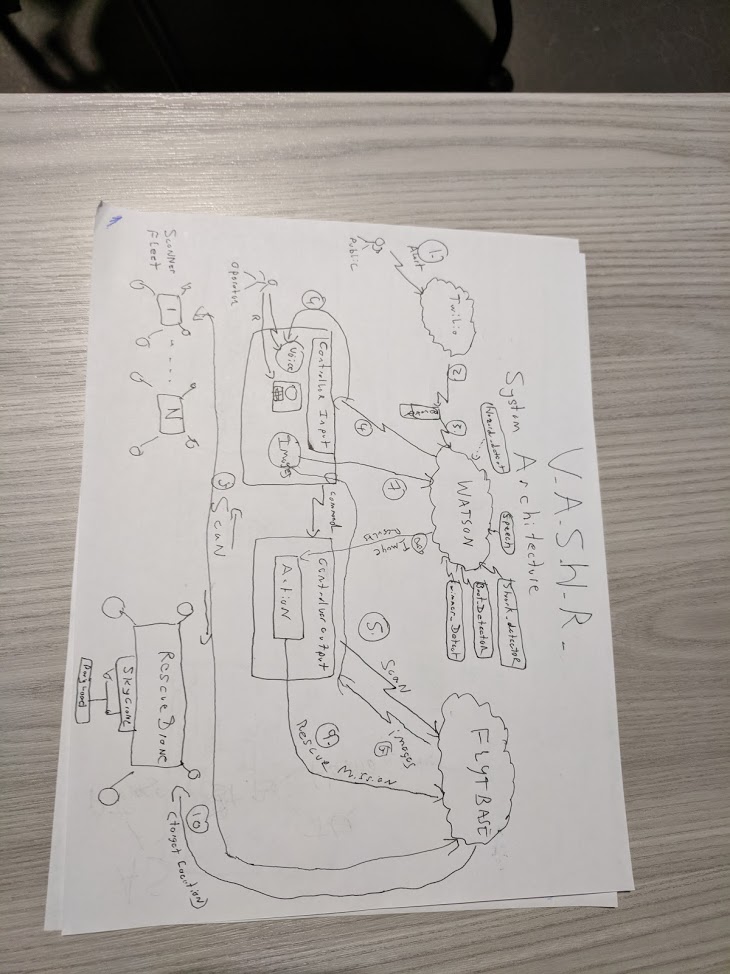 V.A.S.H.R.
System Architecture
1.)
Alert
Public
Twilio
2
3
Hazard_detect
WATSON
Speech
Shark_detector
Boat_Detector
Swimmer_Detect
FLYTBASE
4
7
8
Image
Results
5.
Scan
6
images
9.
Rescue Mission
G
Operator
R
Controller Input
Voice
Images
Command
Controller output
Action
3
Scan
Scanner
Fleet
1
....
N
Rescue Drone
Skycrane
10
(target location)